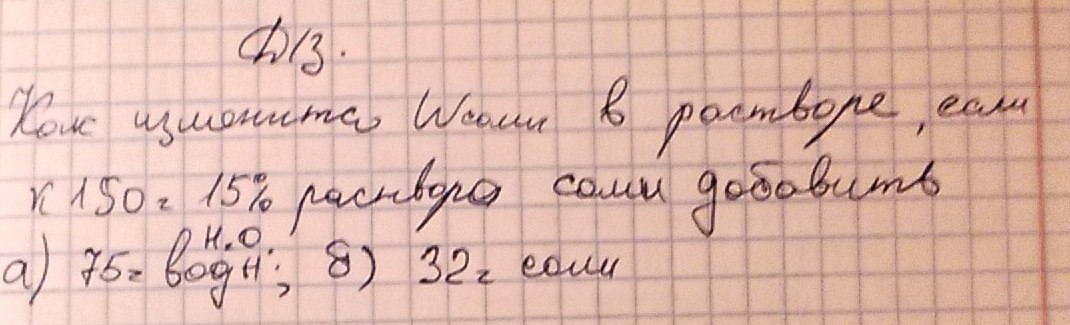 Д/З.
Как изменится Wсоли в растворе, если
к 150г 15% раствора соли добавить
H₂O
а) 75г воды; б) 32г соли